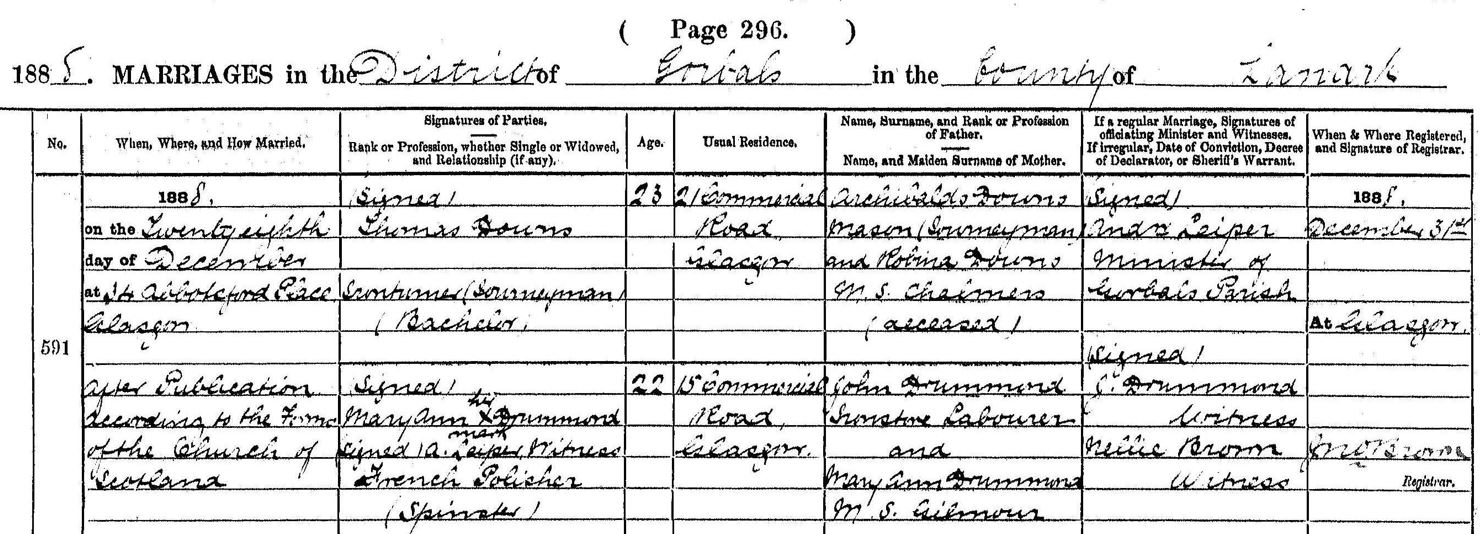 ( Page 296. )
1888. MARRIAGES in the District of Gorbals in the County of Lanark
No.
When, Where, and How Married.
Signatures of Parties.
Rank or Profession, whether Single or Widowed,
and Relationship (if any).
Age.
Usual Residence.
Name, Surname, and Rank or Profession
of Father.
Name, and Maiden Surname of Mother.
If a regular Marriage, Signatures of
officiating Minister and Witnesses.
If irregular, Date of Conviction, Decree
of Declarator, or Sheriff's Warrant.
When & Where Registered,
and Signature of Registrar.
591
1888.
on the Twenty eighth
day of December
at 34 Abbotsford Place
Glasgow
After Publication
according to the Forms
of the Church of
Scotland
(Signed)
Thomas Downs
Ironturner (Journeyman)
(Bachelor)
(Signed)
her
Mary Ann X Drummond
mark
Signed A. Leiper, Witness
French Polisher
(Spinster)
23
22
21 Commercial
Road
Glasgow
15 Commercial
Road,
Glasgow.
Archibald Downs
Mason (Journeyman)
and Robina Downs
M.S. Chalmers
(deceased)
John Drummond
Labourer
and
Mary Ann Drummond
M.S. Gilmour
(Signed)
Andw Leiper
Minister of
Gorbals Parish
(Signed)
J. Drummond
Witness
Nellie Brown
Witness
1888.
December 31st
At Glasgow.
Jno Brown
Registrar.